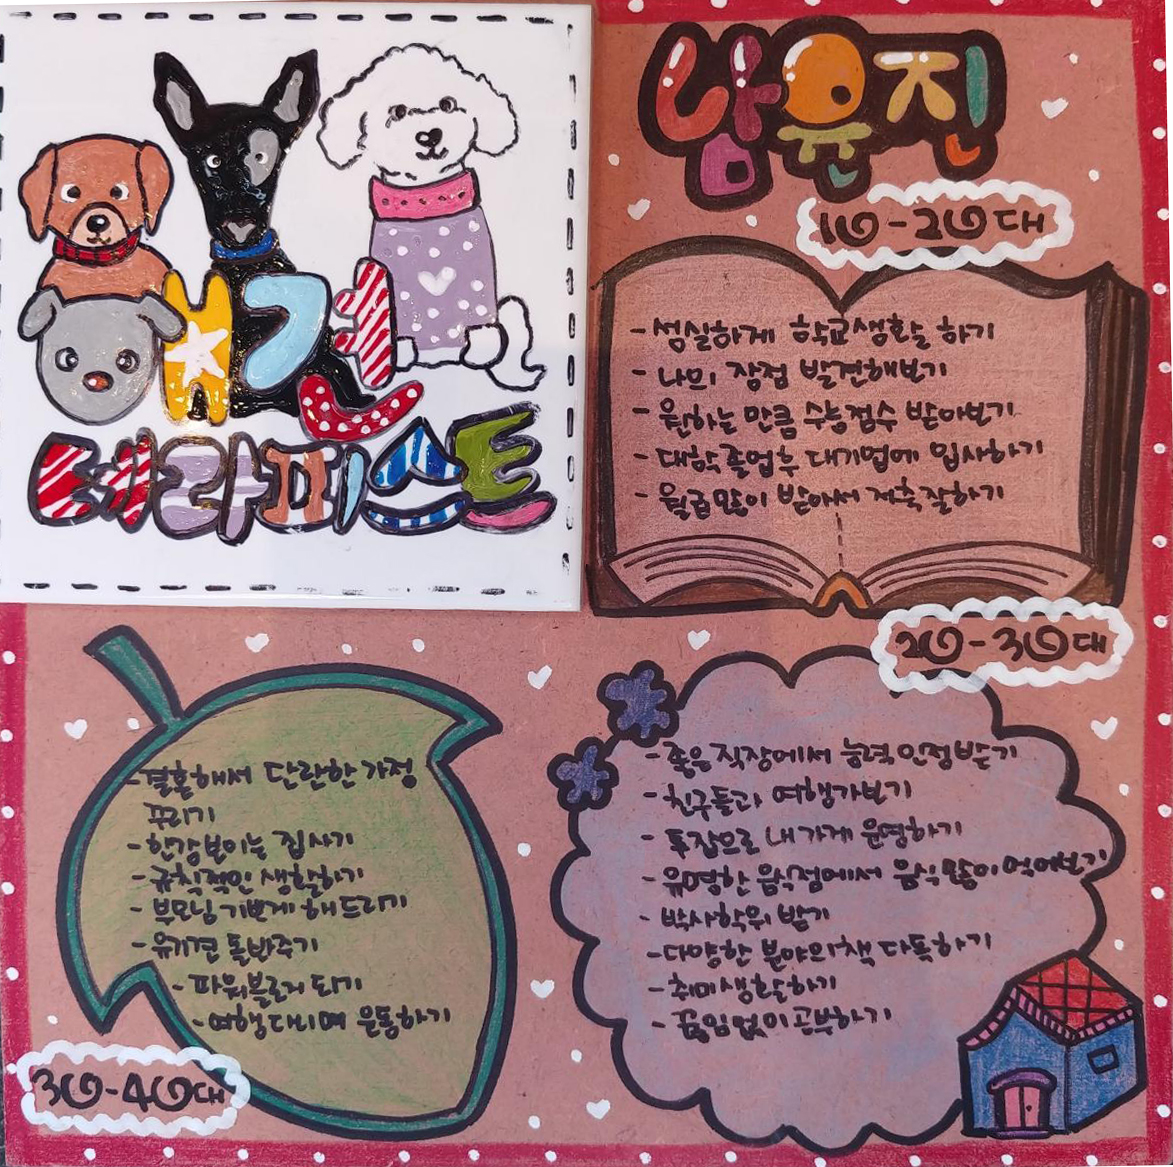 애견
테라피스트
남윤진
10-20대
- 성실하게 학교생활 하기
- 나의 장점 발견해보기
- 원하는 만큼 수능점수 받아보기
- 대학졸업후 대기업에 입사하기
- 월급많이 받아서 저축잘하기
20-30대
- 좋은 직장에서 능력 인정받기
- 친구들과 여행가보기
- 투잡으로 내 가게 운영하기
- 유명한 음식점에서 음식 많이 먹어보기
- 박사학위 받기
- 다양한 분야의 책 다독하기
- 취미생활하기
- 끊임없이 공부하기
- 결혼해서 단란한 가정
꾸리기
- 한강보이는 집 사기
- 규칙적인 생활하기
- 부모님 기쁘게 해드리기
- 유기견 돌봐주기
- 파워블로거 되기
- 여행다니며 운동하기
30-40대